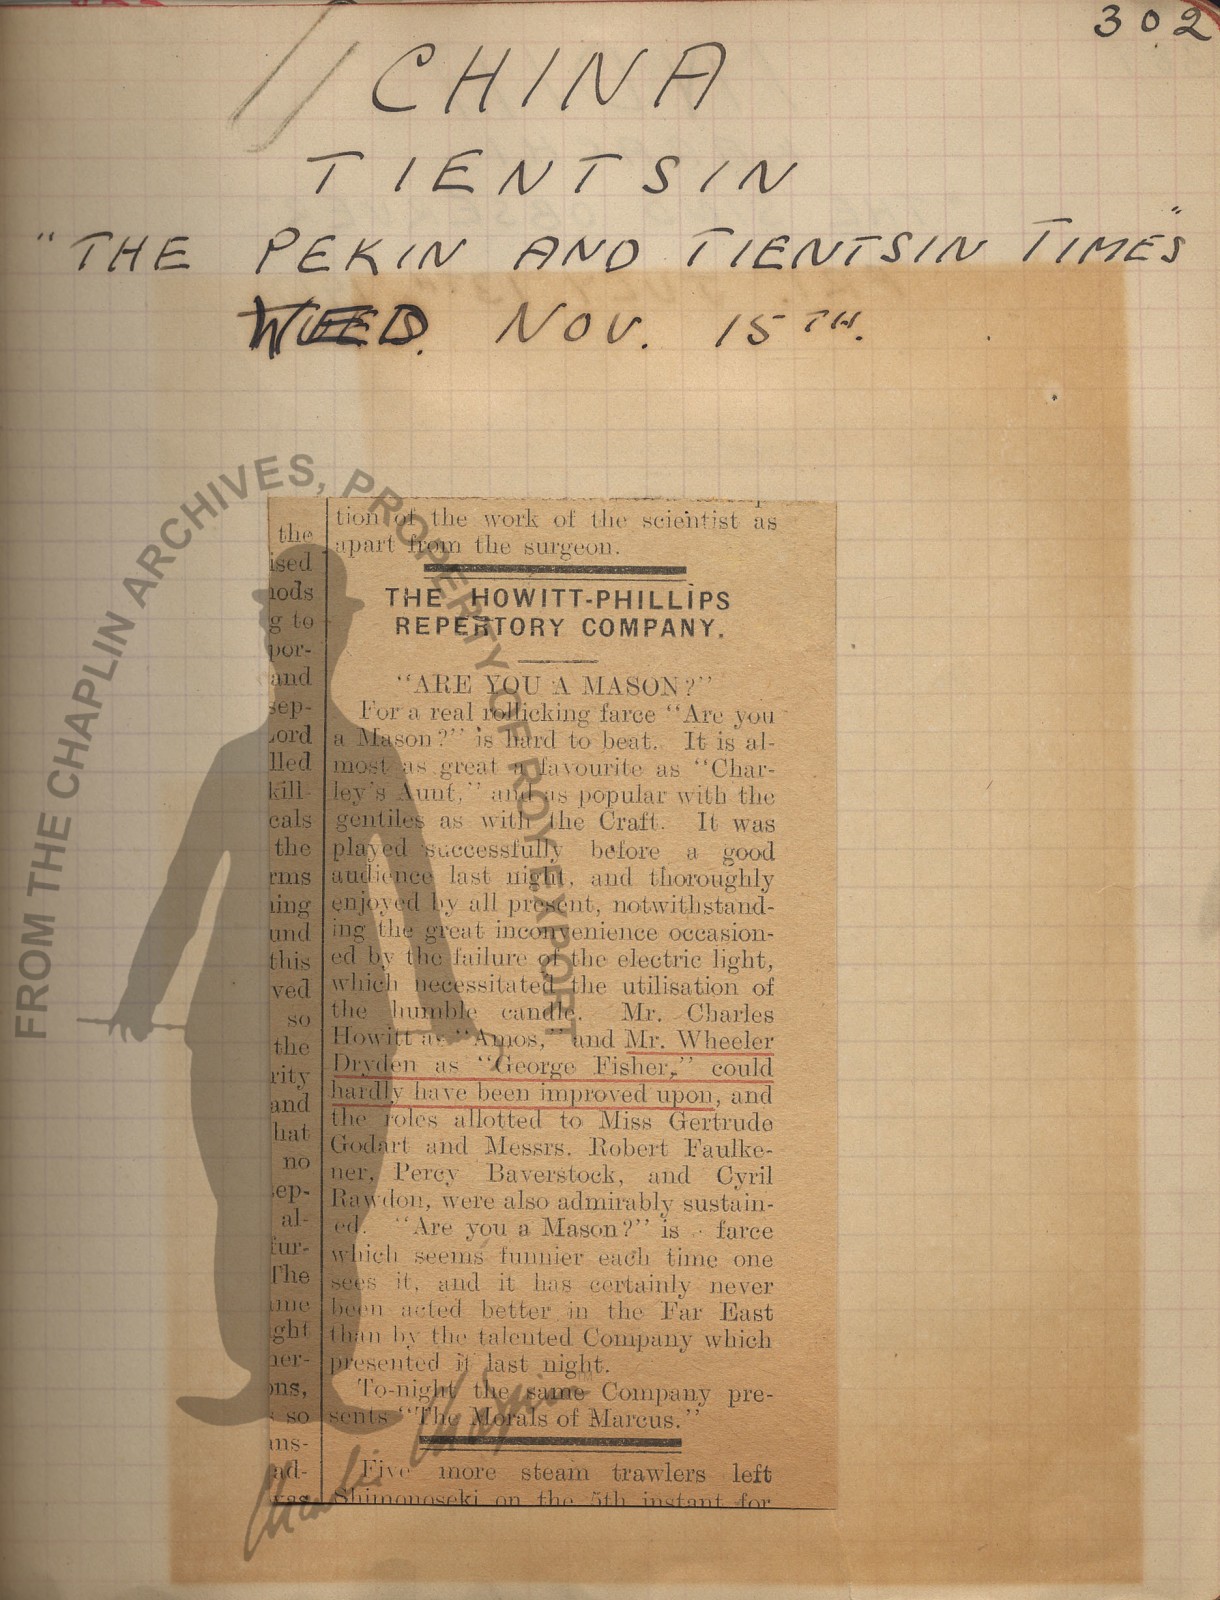 302
CHINA
TIENTSIN
"THE PEKIN AND TIENTSIN TIMES"
WED. NOV. 15TH.
FROM THE CHAPLIN ARCHIVES, PROPERTY OF ROY EXPORT
the
ised
nods
g to
por-
and
sep-
Lord
lled
kill-
cals
the
rms
ning
und
this
ved
so
the
rity
and
hat
no
ep-
al-
fur-
The
ame
ght
her-
ons,
so
ans-
ad-
was
tion of the work of the scientist as
apart from the surgeon.
THE HOWITT-PHILLIPS
REPERTORY COMPANY.
"ARE YOU A MASON?"
For a real rollicking farce "Are you
a Mason?" is hard to beat. It is al-
most as great a favourite as "Char-
ley's Aunt," and as popular with the
gentiles as with the Craft. It was
played successfully before a good
audience last night, and thoroughly
enjoyed by all present, notwithstand-
ing the great inconvenience occasion-
ed by the failure of the electric light,
which necessitated the utilisation of
the humble candle. Mr. Charles
Howitt as "Amos," and Mr. Wheeler
Dryden as "George Fisher," could
hardly have been improved upon, and
the roles allotted to Miss Gertrude
Godart and Messrs. Robert Faulke-
ner, Percy Baverstock, and Cyril
Rawdon, were also admirably sustain-
ed. "Are you a Mason?" is farce
which seems funnier each time one
sees it, and it has certainly never
been acted better in the Far East
than by the talented Company which
presented it last night.
To-night the same Company pre-
sents "The Morals of Marcus."
Five more steam trawlers left
Shimonoseki on the 5th instant for
Charlie Chaplin